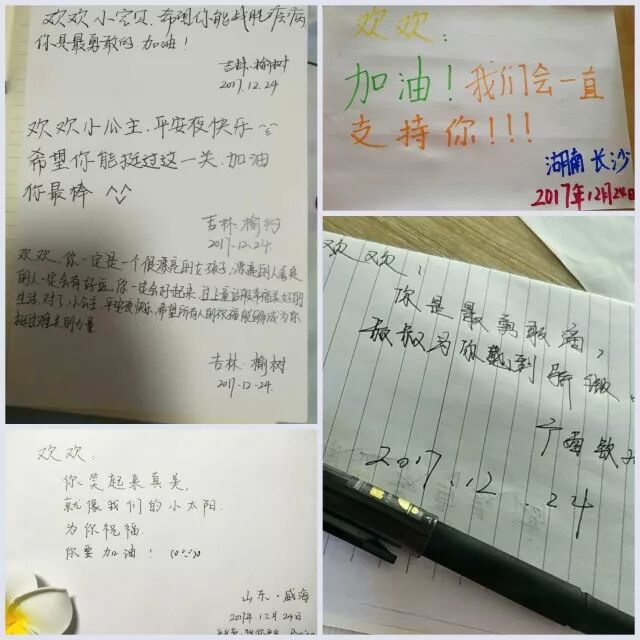 欢欢小宝贝,希望你能战胜疾病,
你是最勇敢的 加油!
吉林·榆树
2017.12.24
欢欢小公主,平安夜快乐
希望你能挺过这一关,加油
你最棒 ^^
吉林·榆树
2017.12.24
欢欢,你一定是一个很漂亮的女孩子,漂亮的人善良
的人一定会有好运,你一定会好起来 过上童话般幸福美好的
生活,对了,小公主,平安夜快乐,希望所有人的祝福能够成为你
挺过难关的力量
吉林·榆树
2017.12.24.
欢欢:
加油!我们会一直
支持你!!!
湖南 长沙
2017年12月24日
欢欢:
你是最勇敢滴,
叔叔为你感到骄傲.
广西钦
2017.12.24
欢欢:
你笑起来真美,
就像我们的小太阳.
为你祝福.
你要加油!
山东·威海
2017年12月24日